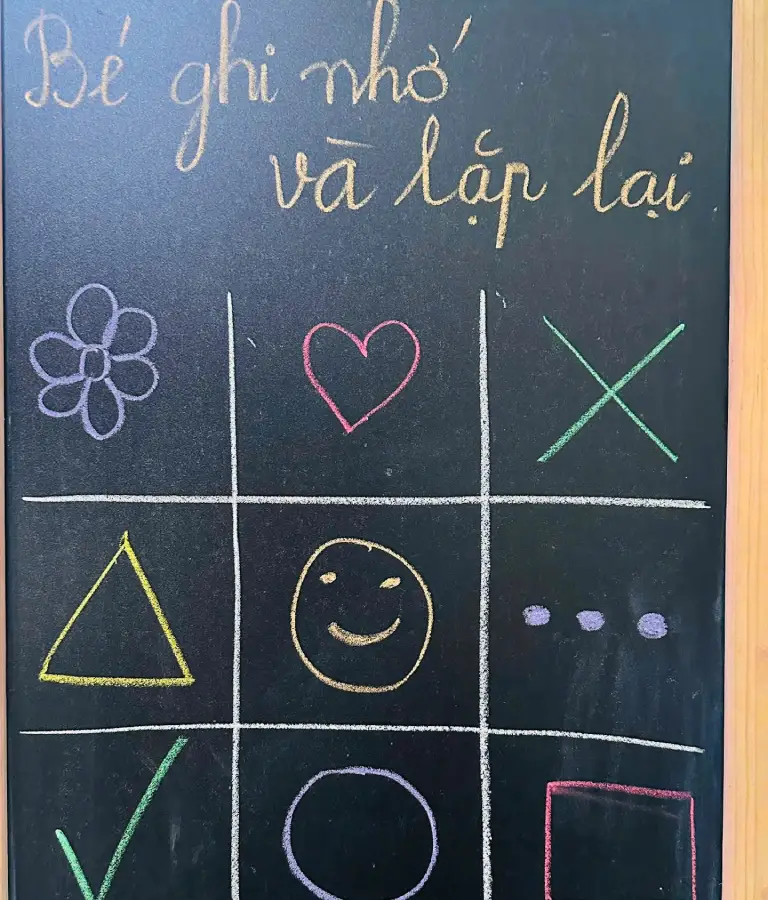 Bé ghi nhớ
và lặp lại